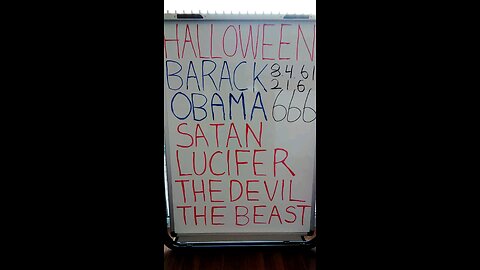 HALLOWEEN
BARACK 8.4.61
2 1, 6,
OBAMA 666
SATAN
LUCIFER
THE DEVIL
THE BEAST